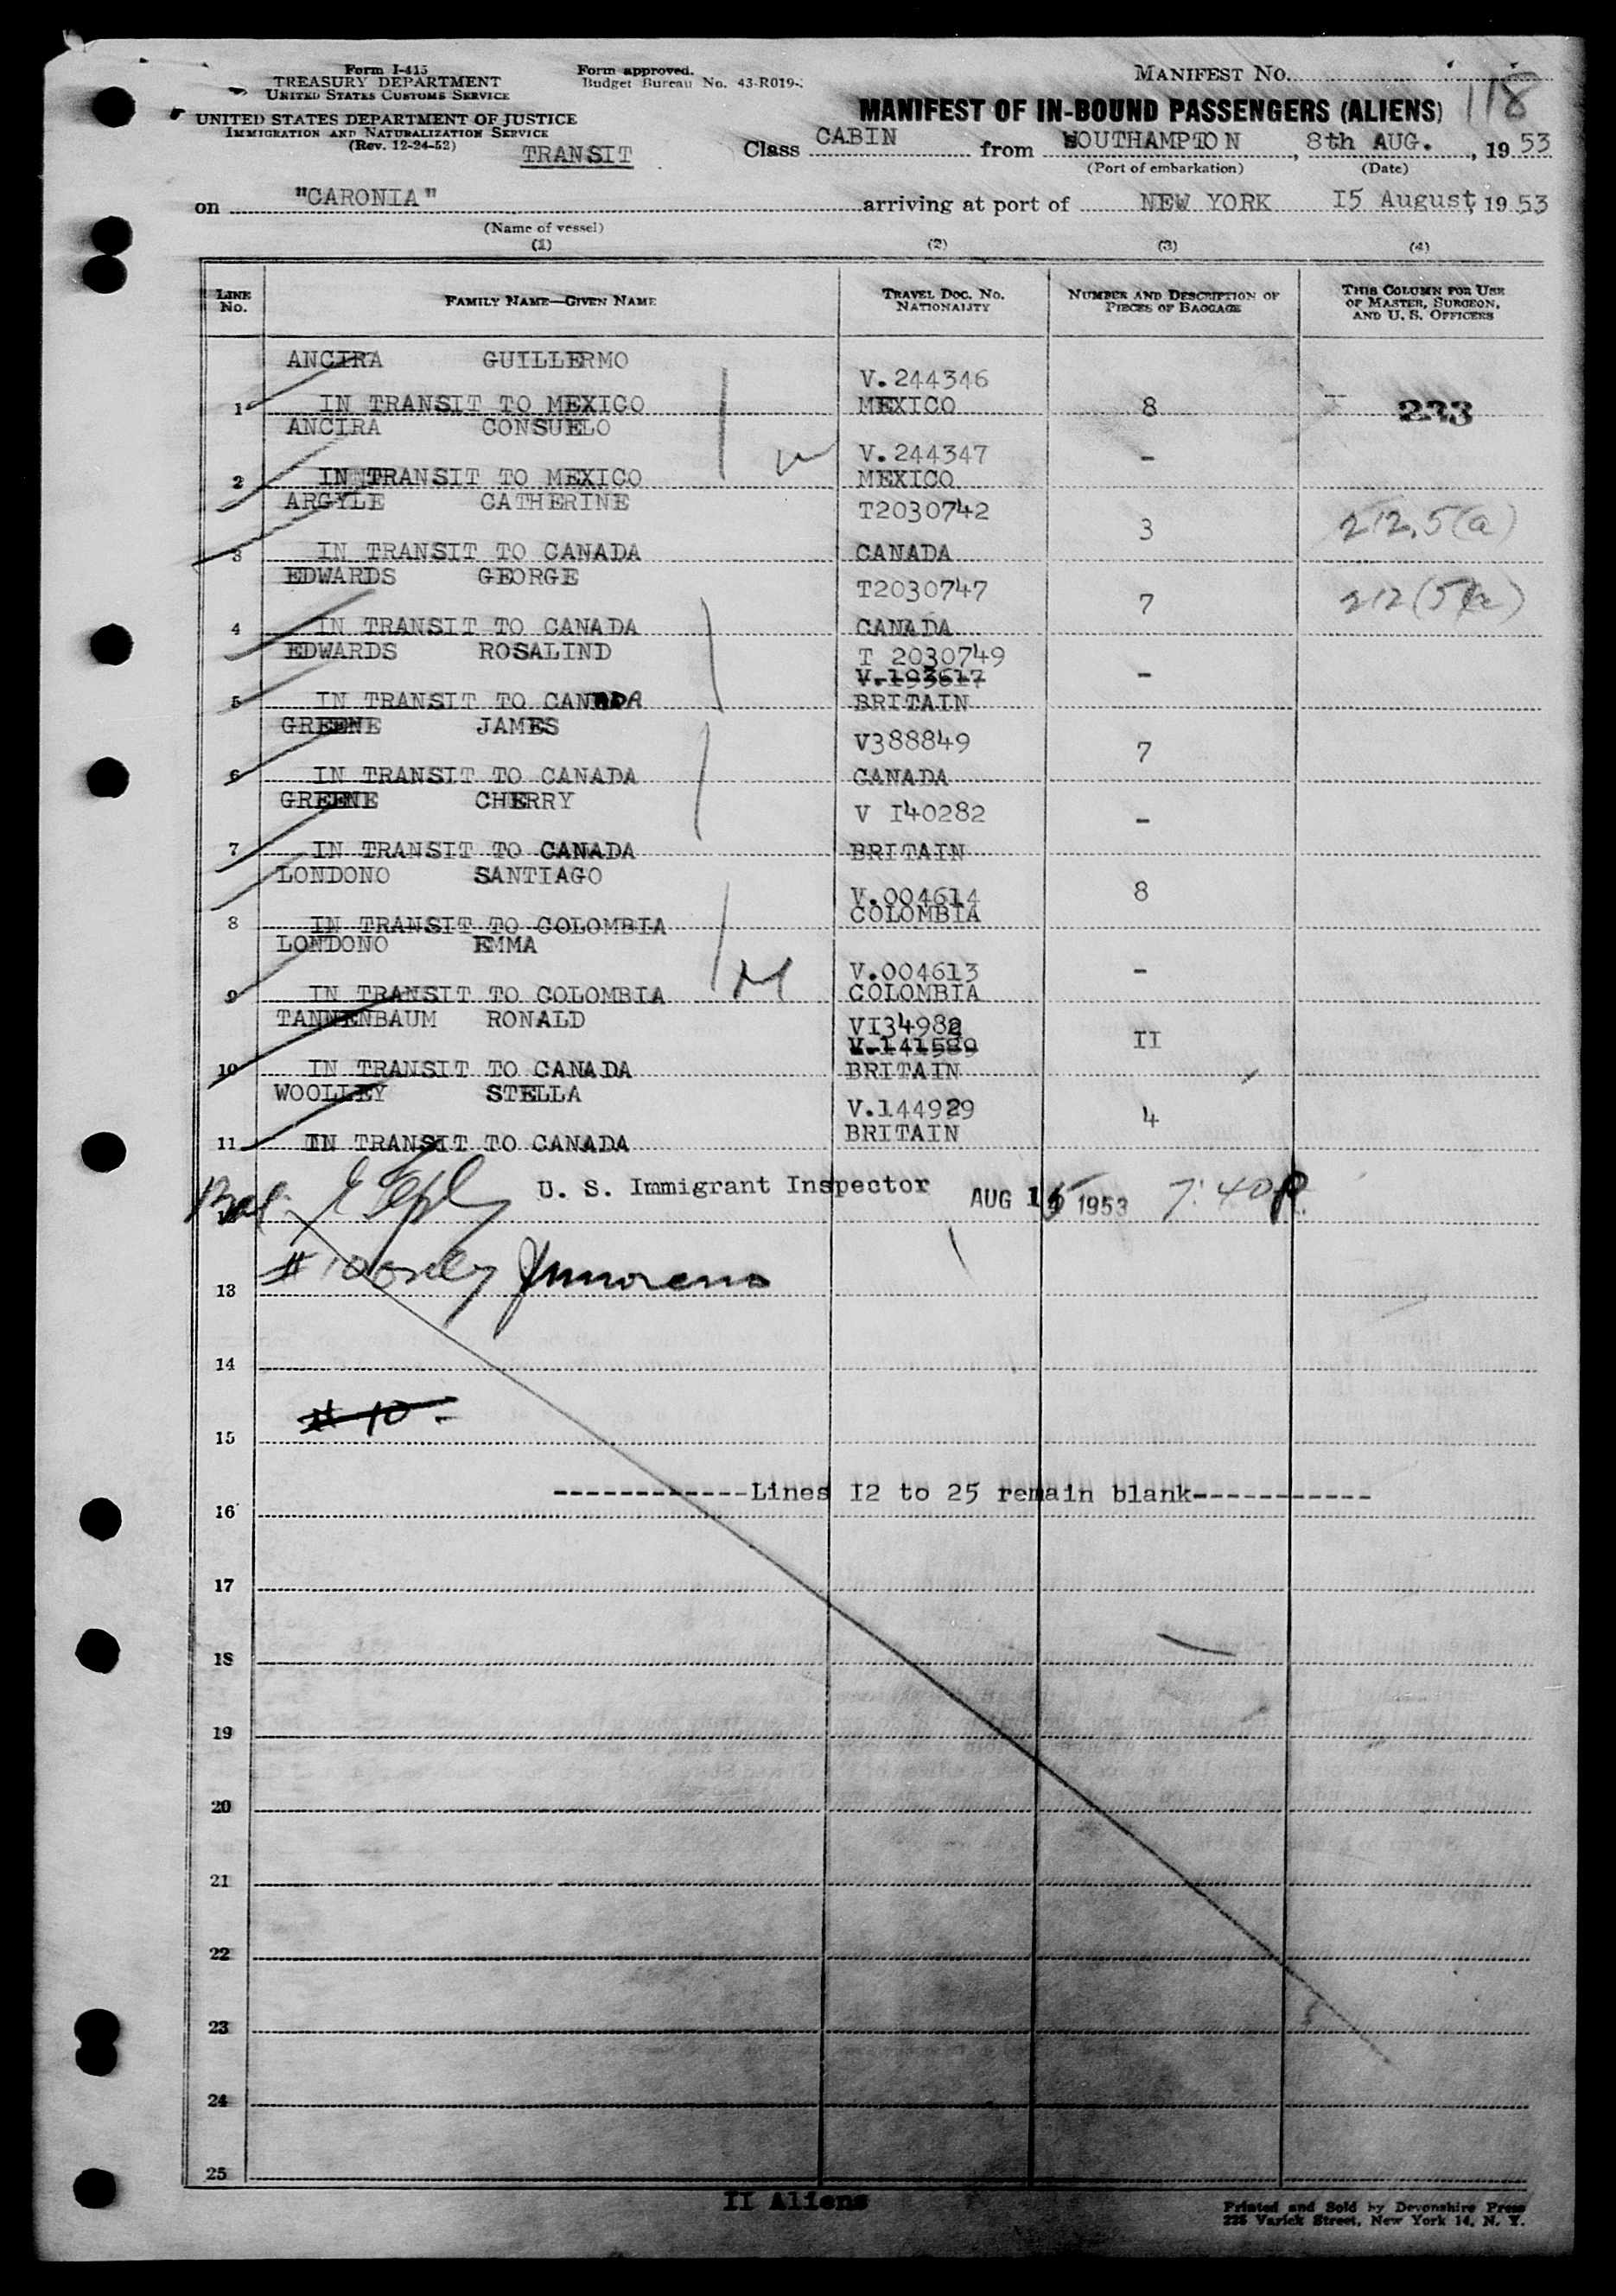 Form I-415
TREASURY DEPARTMENT
UNITED STATES CUSTOMS SERVICE
UNITED STATES DEPARTMENT OF JUSTICE
IMMIGRATION AND NATURALIZATION SERVICE
(Rev. 12-24-52)
TRANSIT
Form approved.
Budget Bureau No. 43-R019-
MANIFEST NO.
118
MANIFEST OF IN-BOUND PASSENGERS (ALIENS)
Class CABIN from SOUTHAMPTON, 8th AUG., 1953
(Port of embarkation) (Date)
on "CARONIA" arriving at port of NEW YORK 15 August, 1953
(Name of vessel)
(1) (2) (3) (4)
LINE NO. FAMILY NAME—GIVEN NAME TRAVEL DOC. NO. NATIONALITY NUMBER AND DESCRIPTION OF PIECES OF BAGGAGE THIS COLUMN FOR USE OF MASTER, SURGEON, AND U. S. OFFICERS
ANCIRA GUILLERMO V.244346
1 IN TRANSIT TO MEXICO MEXICO 8 233
ANCIRA CONSUELO V.244347 -
2 IN TRANSIT TO MEXICO MEXICO
ARGYLE CATHERINE T2030742 3 212.5(a)
3 IN TRANSIT TO CANADA CANADA
EDWARDS GEORGE T2030747 7 212(5)(a)
4 IN TRANSIT TO CANADA CANADA
EDWARDS ROSALIND T 2030749
V.193617 -
5 IN TRANSIT TO CANADA BRITAIN
GREENE JAMES V388849 7
6 IN TRANSIT TO CANADA CANADA
GREENE CHERRY V I40282 -
7 IN TRANSIT TO CANADA BRITAIN
LONDONO SANTIAGO V.004614 8
8 IN TRANSIT TO COLOMBIA COLOMBIA
LONDONO EMMA V.004613 -
9 IN TRANSIT TO COLOMBIA COLOMBIA
TANNENBAUM RONALD VI34982 II
V.141589
10 IN TRANSIT TO CANADA BRITAIN
WOOLLEY STELLA V.144929 4
11 IN TRANSIT TO CANADA BRITAIN
Bal. U. S. Immigrant Inspector AUG 15 1953 7:40 P.
# 10 only
13
14
# 10 -
15
------------Lines I2 to 25 remain blank-----------
16
17
18
19
20
21
22
23
24
25
II Aliens
Printed and Sold by Devonshire Press
225 Varick Street, New York 14, N. Y.